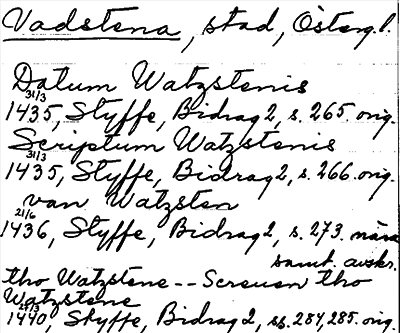 Vadstena, stad, Österg.l.
Datum Watzstenis
31/3
1435, Styffe, Bidrag 2, s. 265. orig.
Scriptum Watzstenis
31/3
1435, Styffe, Bidrag 2, s. 266. orig.
van Watzsten
21/6
1436, Styffe, Bidrag 2, s. 273. nära
samt. avskr.
tho Watzstene -- Screuen tho
Watzstene
1440, Styffe, Bidrag 2, ss. 284, 285. orig.